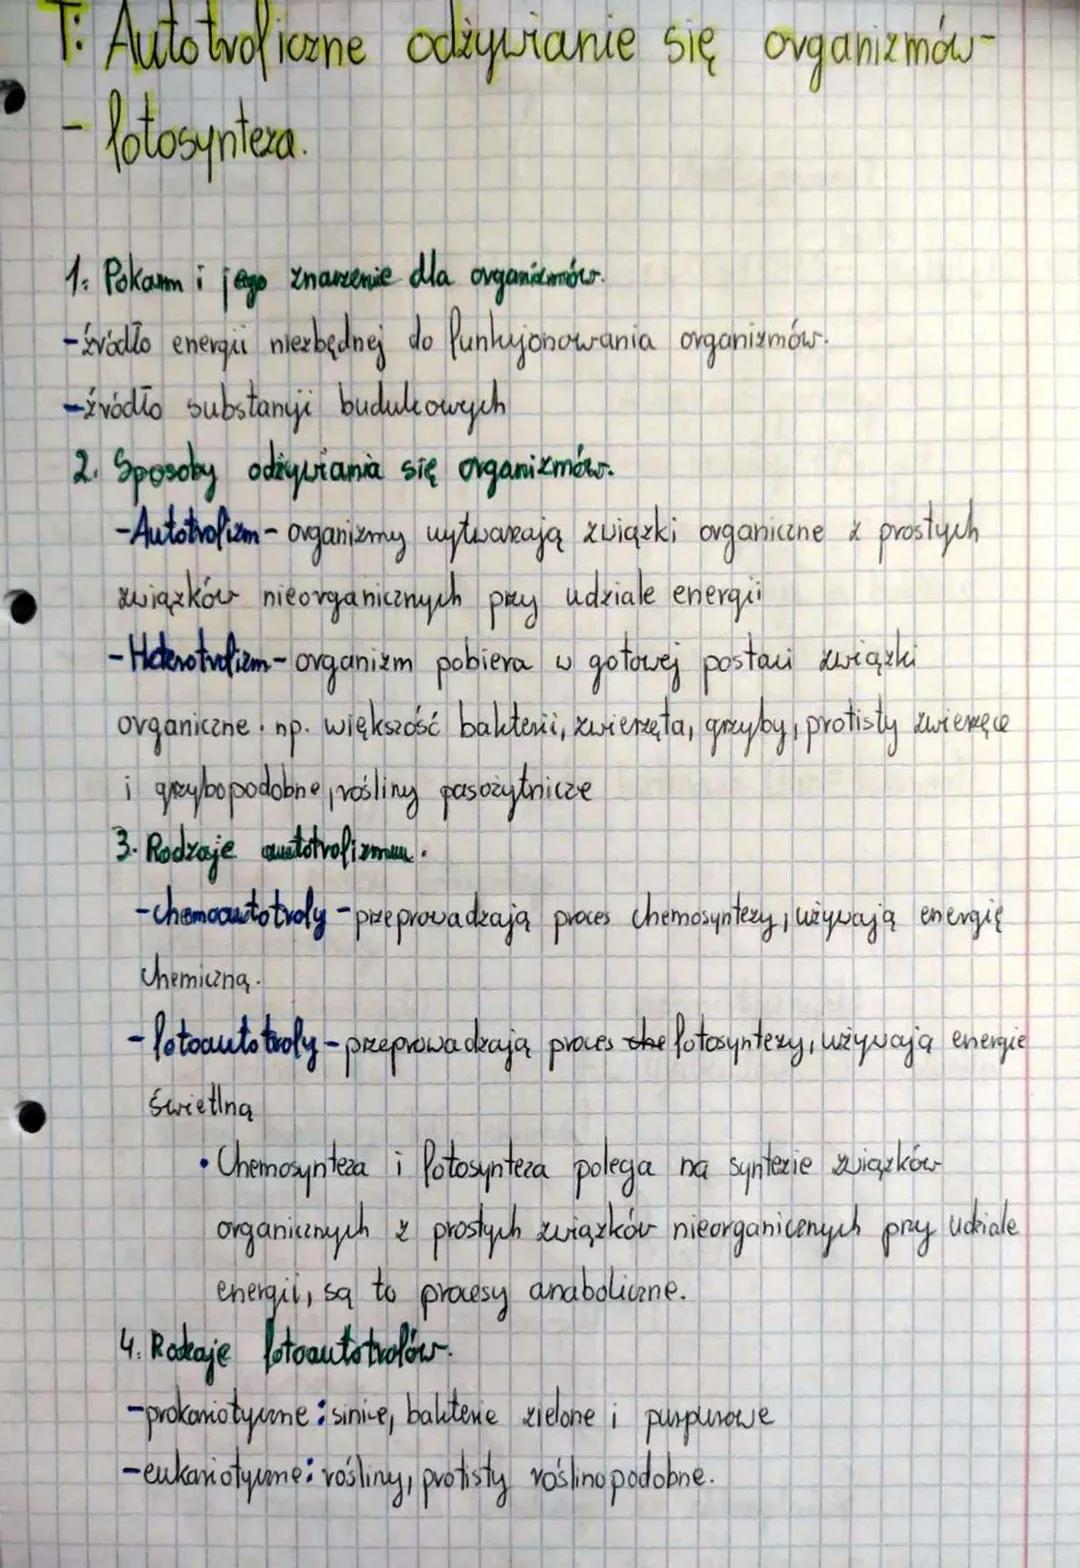 T: Autotroficzne odżywianie się organizmów-
- fotosynteza.
1. Pokarm i jego znaczenie dla organizmów.
-źródło energii niezbędnej do funkcjonowania organizmów.
-źródło substancji budulcowych
2. Sposoby odżywiania się organizmów.
-Autotrofizm- organizmy wytwarzają związki organiczne z prostych
związków nieorganicznych przy udziale energii
-Heterotrofizm- organizm pobiera w gotowej postaci związki
organiczne. np. większość bakterii, zwierzęta, grzyby, protisty zwierzęce
i grzybopodobne, rośliny pasożytnicze
3. Rodzaje autotrofizmu.
-chemoautotrofy - przeprowadzają proces chemosyntezy, używają energię
chemiczną.
- fotoautotrofy - przeprowadzają proces che fotosyntezy, używają energie
świetlną
• Chemosynteza i fotosynteza polega na syntezie związków
organicznych z prostych związków nieorganicznych przy udziale
energii, są to procesy anaboliczne.
4. Rodzaje fotoautotrofów.
-prokariotyczne: sinice, bakterie zielone i purpurowe
-eukariotyczne: rośliny, protisty roślinopodobne.